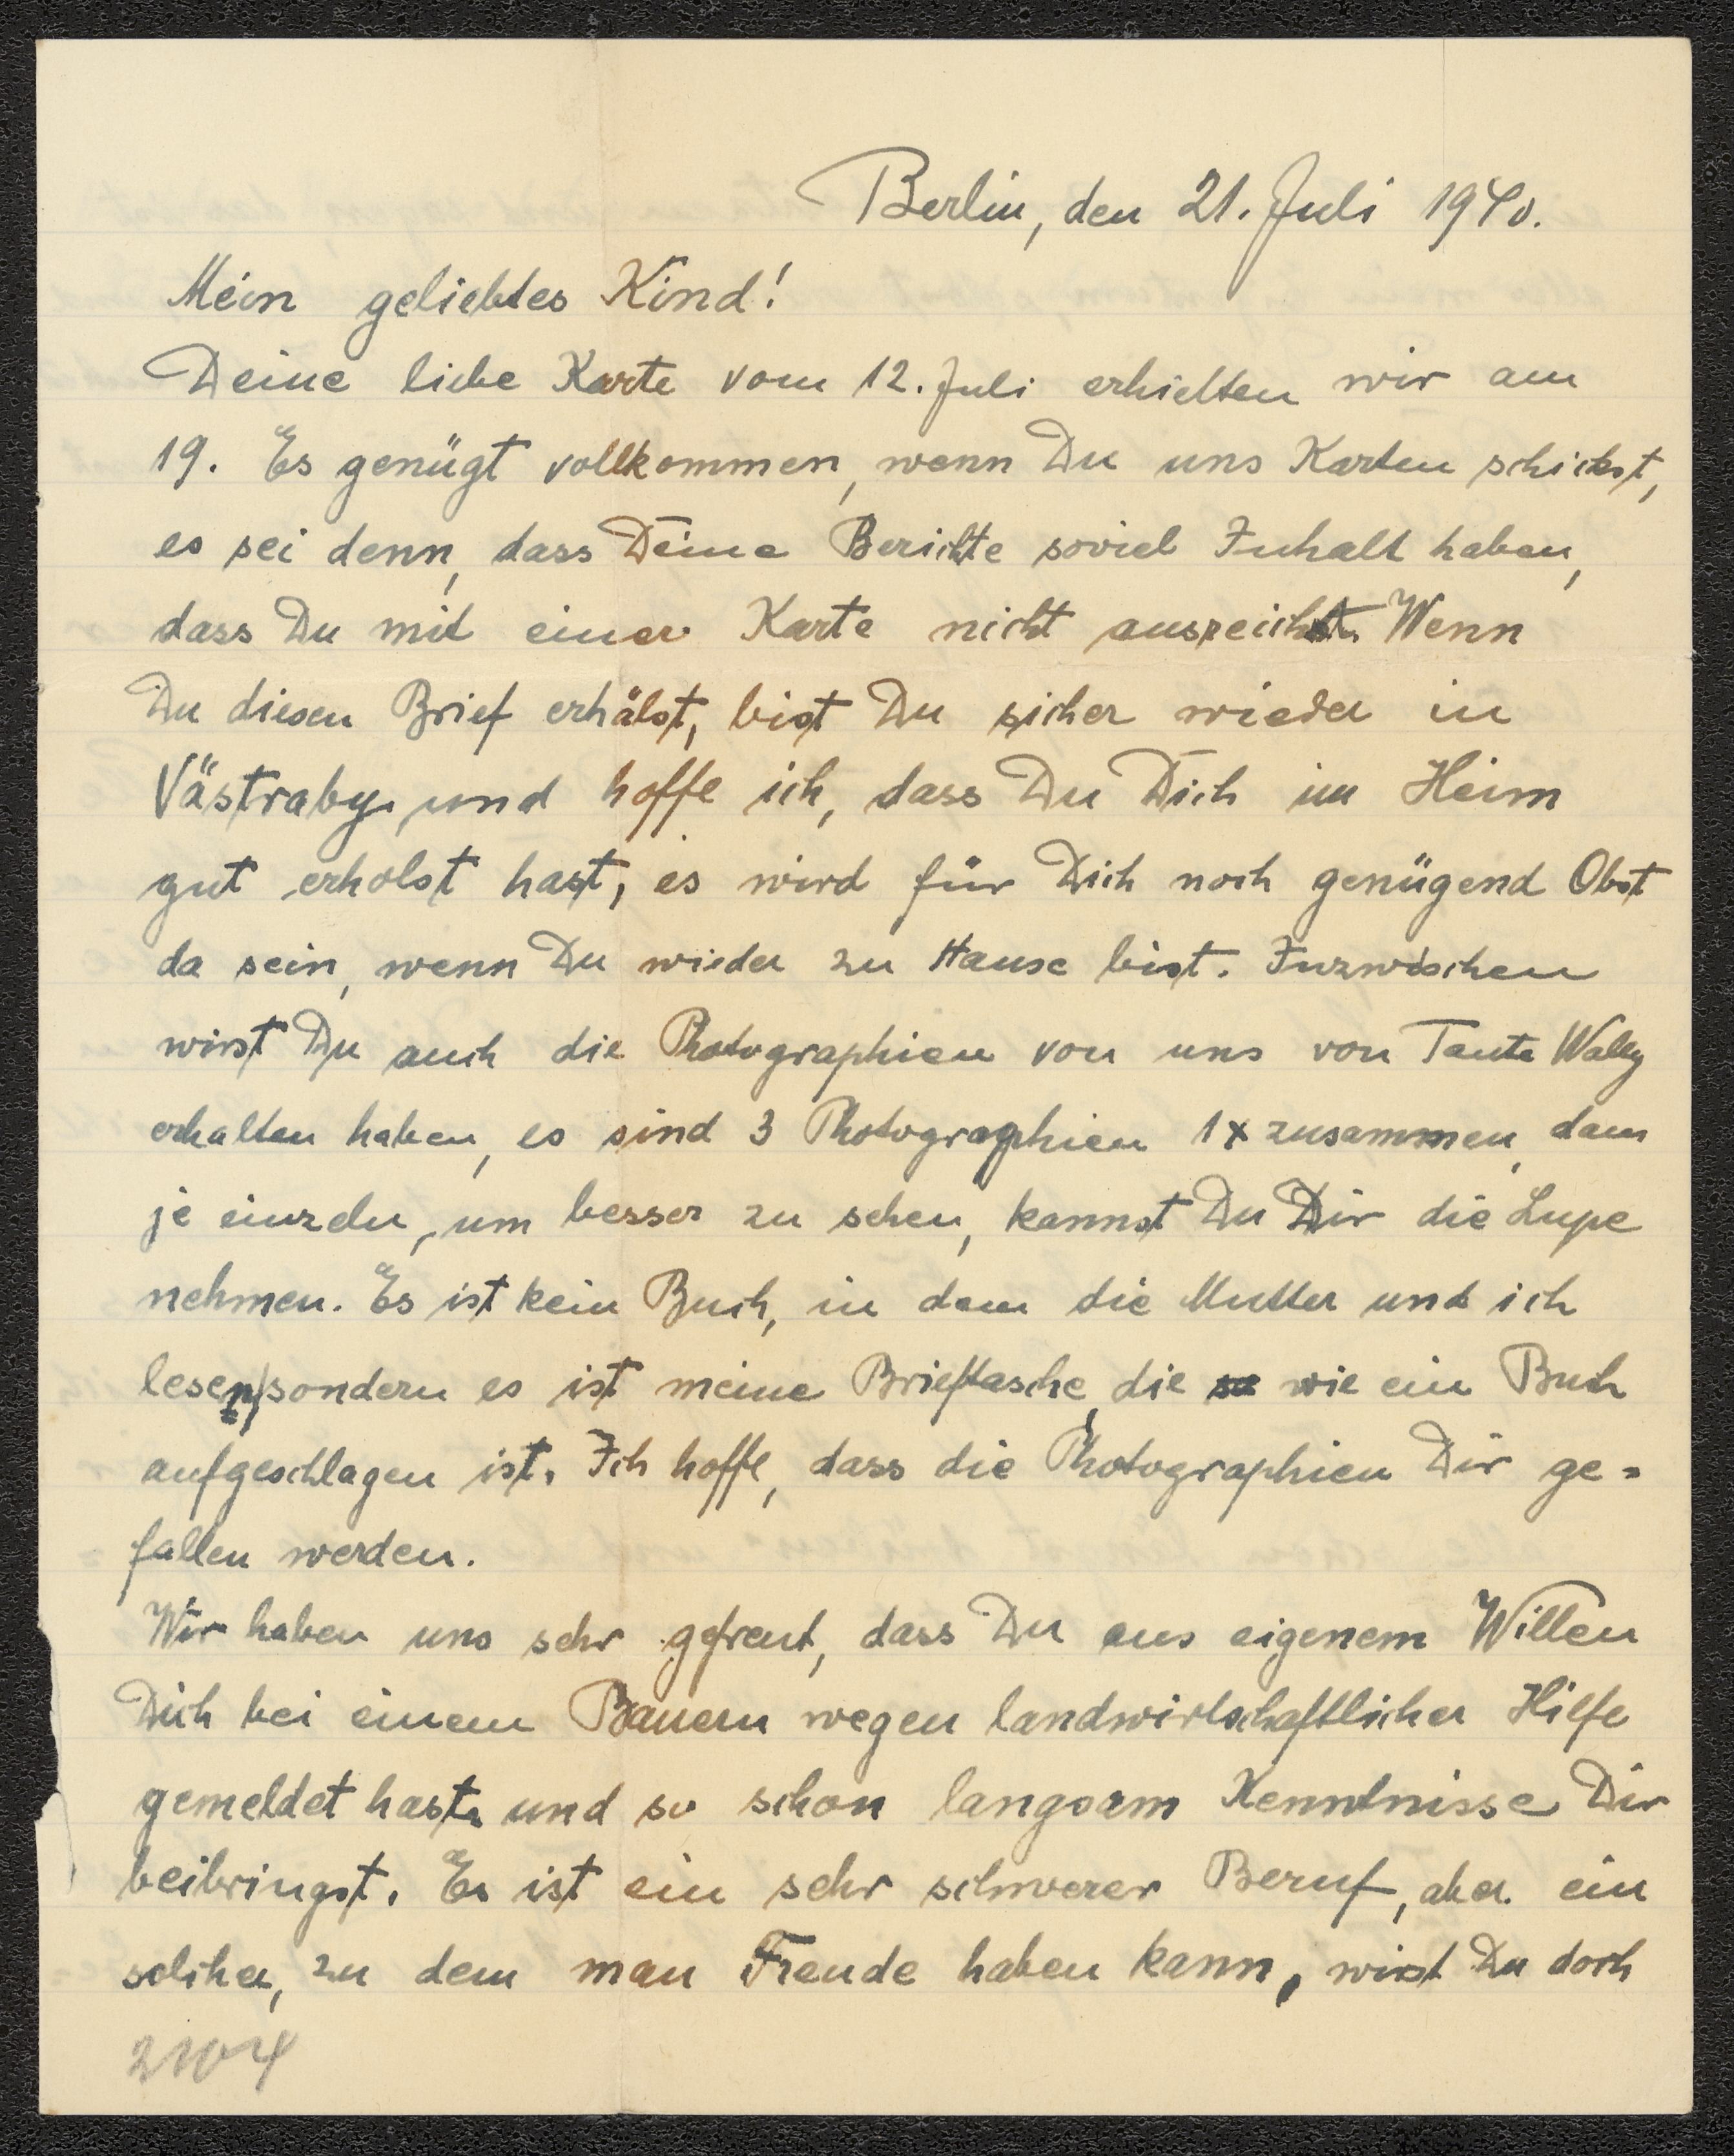 Berlin, den 21. Juli 1940.
Mein geliebtes Kind!
Deine liebe Karte vom 12. Juli erhielten wir am
19. Es genügt vollkommen, wenn Du uns Karten schickst,
es sei denn, dass Deine Berichte soviel Inhalt haben,
dass Du mit einer Karte nicht ausreichst. Wenn
Du diesen Brief erhälst, bist Du sicher wieder in
Västraby und hoffe ich, dass Du Dich im Heim
gut erholst hast, es wird für Dich noch genügend Obst
da sein, wenn Du wieder zu Hause bist. Inzwischen
wirst Du auch die Photographien von uns von Tante Wally
erhalten haben, es sind 3 Photographien 1x zusammen, dann
je einzeln, um besser zu sehen, kannst Du Dir die Lupe
nehmen. Es ist kein Buch, in dem die Mutter und ich
lesen, sondern es ist meine Brieftasche, die wie ein Buch
aufgeschlagen ist. Ich hoffe, dass die Photographien Dir ge=
fallen werden.
Wir haben uns sehr gefreut, dass Du aus eigenem Willen
Dich bei einem Bauern wegen landwirtschaftlicher Hilfe
gemeldet hast und so schon langsam Kenntnisse Dir
beibringst. Es ist ein sehr schwerer Beruf, aber ein
solcher, zu dem man Freude haben kann, wirst Du doch
2104